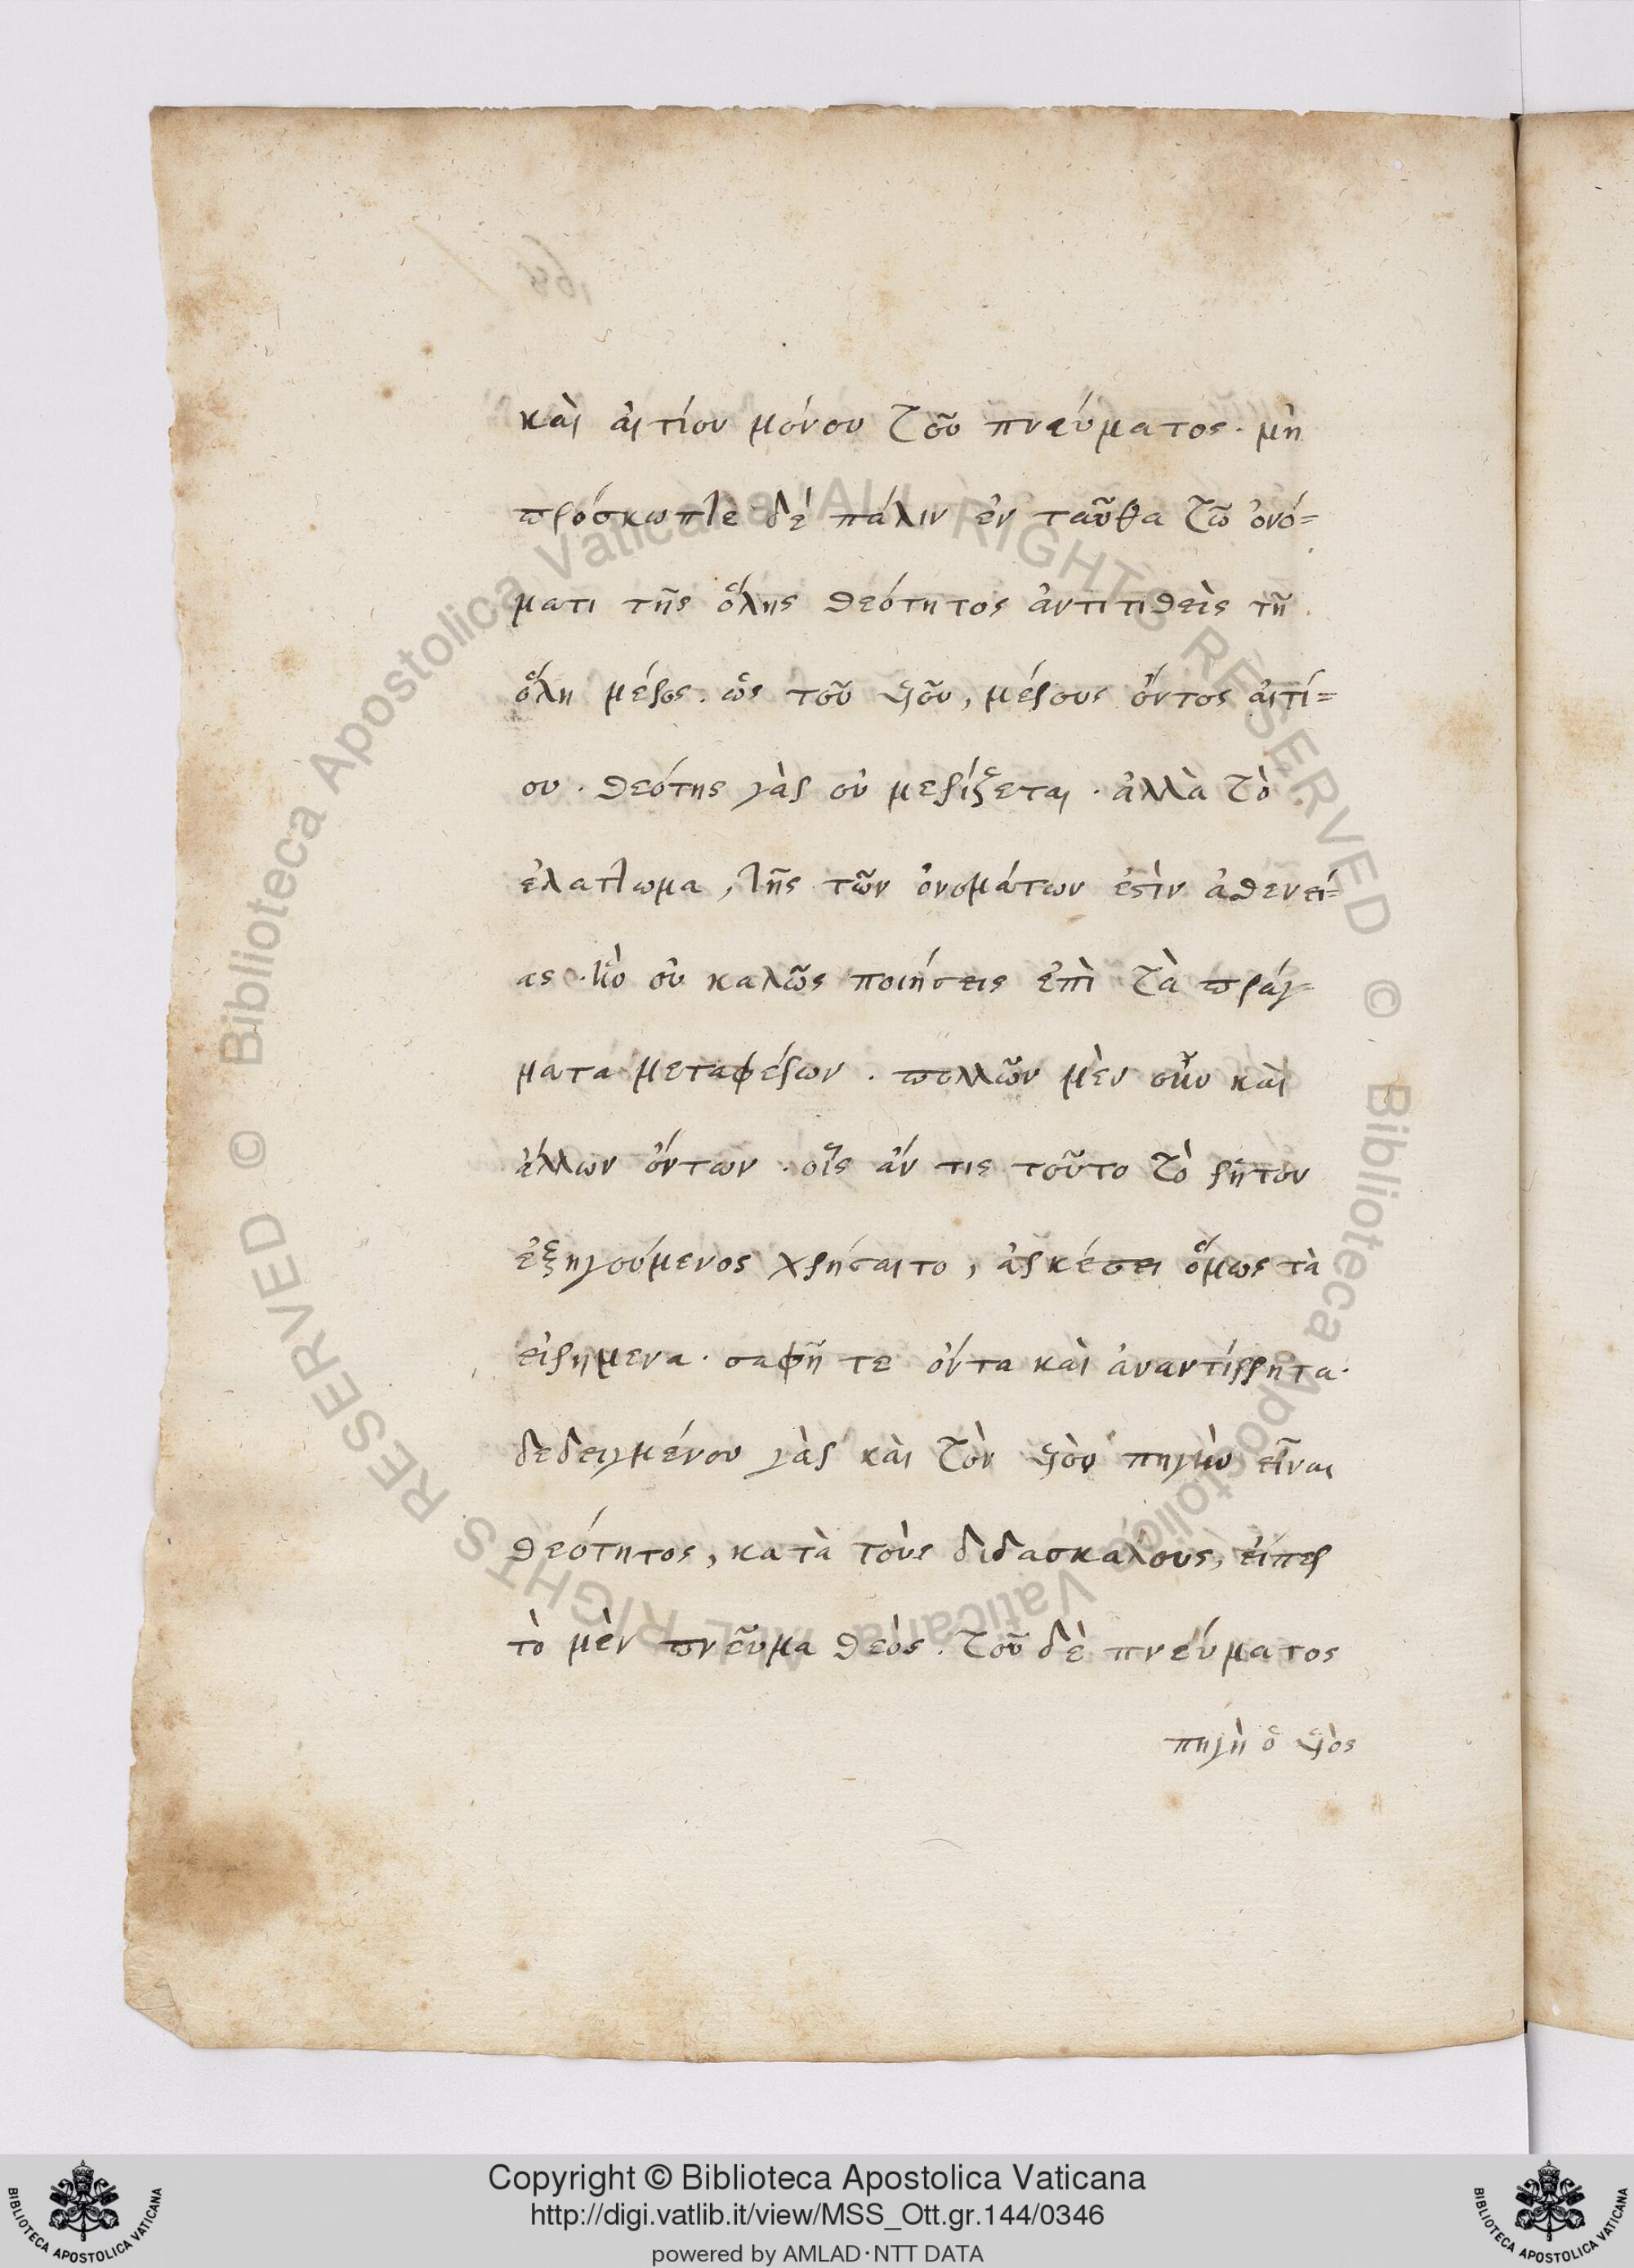 καὶ αἰτίου μόνου τοῦ πνεύματος. μὴ
πρόσκωπτε δὲ πάλιν ἐν ταῦθα τῶ ὀνό=
ματι τῆς ὅλης θεότητος ἀντιτιθεὶς τῆ
ὅλη μέρος. ὡς τοῦ υἱοῦ, μέρους ὄντος αἰτί=
ου. θεότης γὰρ οὐ μερίζεται. ἀλλὰ τὸ
ἐλάττωμα, τῆς τῶν ὀνομάτων ἐστὶν ἀσθενεί=
ας. ὃ οὐ καλῶς ποιήσεις ἐπὶ τὰ πράγ=
ματα μεταφέρων. πολλῶν μὲν οὖν καὶ
ἄλλων ὄντων. οἷς ἄν τις τοῦτο τὸ ῥητὸν
ἐξηγούμενος χρήσαιτο, ἀρκέσει ὅμως τὰ
εἰρημενα. σαφῆ τε ὄντα καὶ ἀναντίρρητα.
δεδειγμένου γὰρ καὶ τὸν υἱὸν πηγὴν εἶναι
θεότητος, κατὰ τοὺς διδασκάλους, εἴπερ
τὸ μὲν πνεῦμα θεός. τοῦ δὲ πνεύματος
πηγὴ ὁ υἱὸς
© Biblioteca Apostolica Vaticana ALL RIGHTS RESERVED © Biblioteca Apostolica Vaticana ALL RIGHTS RESERVED
Copyright © Biblioteca Apostolica Vaticana
http://digi.vatlib.it/view/MSS_Ott.gr.144/0346
powered by AMLAD·NTT DATA
BIBLIOTECA APOSTOLICA VATICANA
BIBLIOTECA APOSTOLICA VATICANA